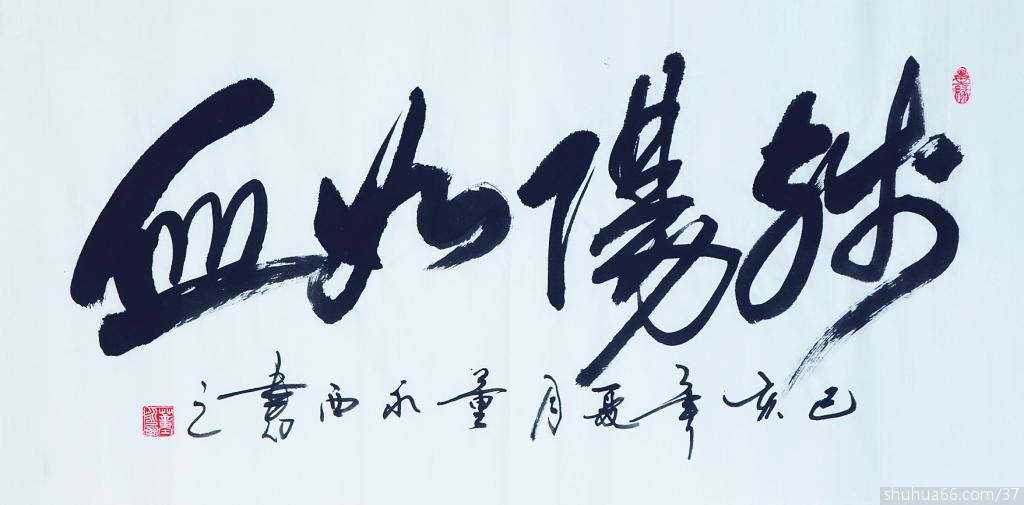 殘陽如血
己亥年夏月董永西書之
shuhua66.com/37